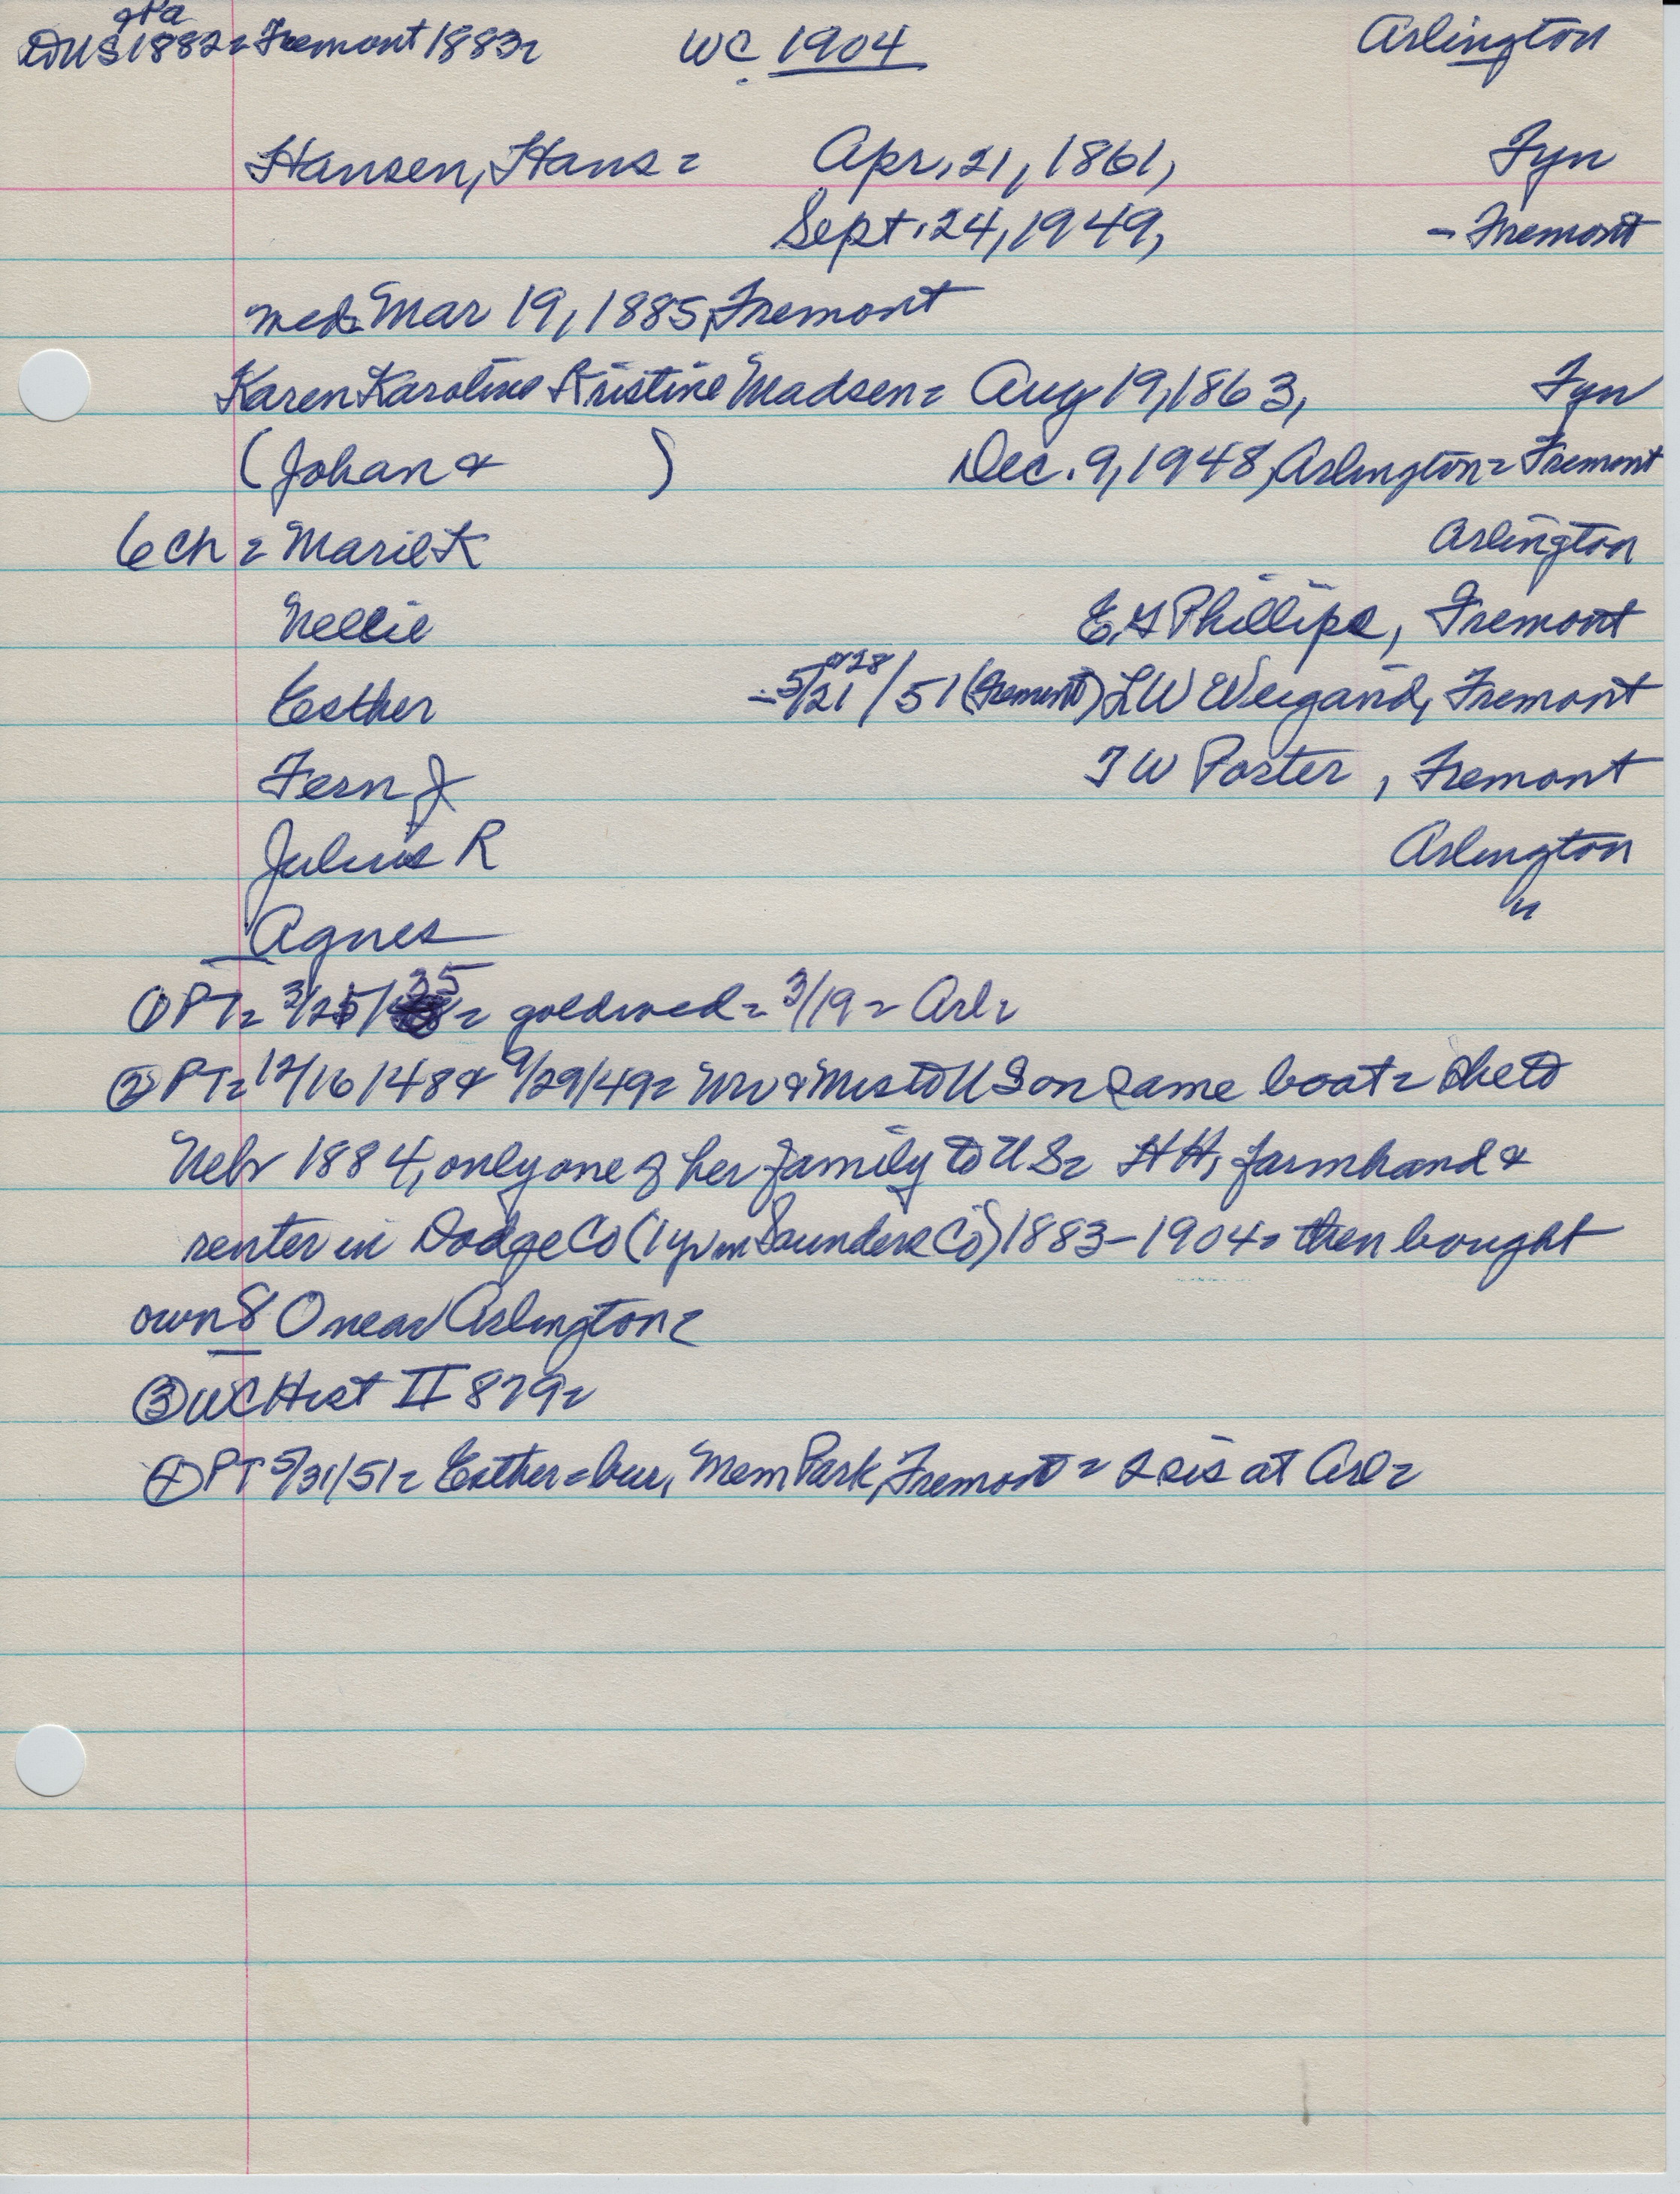 & Pa
to US 1882= Fremont 1883= WC 1904 Arlington
Hansen, Hans= Apr. 21, 1861, Fyn
Sept. 24, 1949, - Fremont
wed. Mar 19, 1885, Fremont
Karen Karoline Kristine Madsen= Aug 19, 1863, Fyn
(Johan & ) Dec. 9, 1948, Arlington= Fremont
6 ch = Marie K Arlington
Nellie E G Phillips, Fremont
or 28
Esther - 5/21/51 (Fremont) L W Weigand, Fremont
Fern J T W Porter, Fremont
Julius R Arlington
Agnes "
① PT= 3/25/35= goldwed= 3/19= Arl=
② PT= 12/16/48 & 9/29/49= Mr & Mrs to US on same boat= she to
Nebr 1884, only one of her family to US= HH, farmhand &
renter in Dodge Co (1 yr in Saunders Co) 1883-1904= then bought
own 80 near Arlington=
③ WC Hist II 879=
④ PT 5/31/51= Esther= bur, Mem Park, Fremont= 2 sis at Arl=